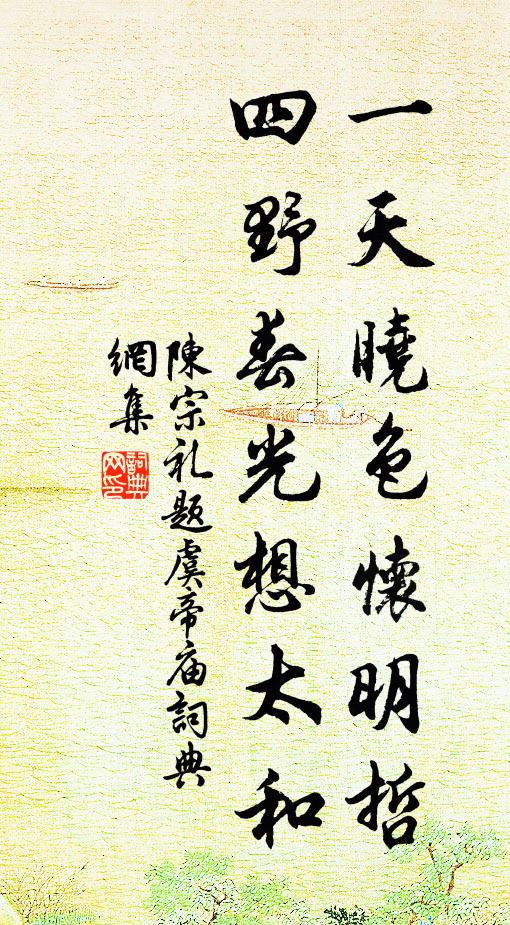 一天曉色懷明哲
四野春光想太和
陳宗礼題虞帝庙詞典
網集
詞典
网印